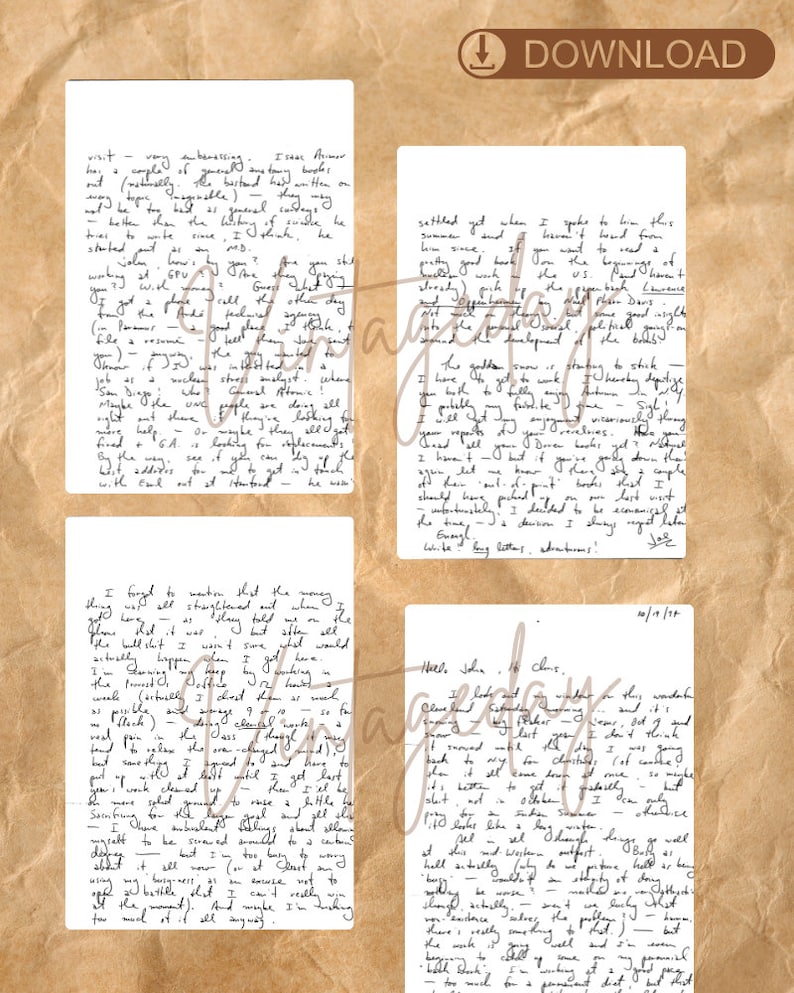 DOWNLOAD
visit — very embarassing. Isaac Asimov
has a couple of general anatomy books
out (naturally. The bastard has written on
every topic imaginable) — they may
not be too bad as general surveys
— better than the history of science he
tries to write since, I think, he
started out as an M.D.
John, how's by you? Are you still
working at GPU? Are they paying
you? With money? Guess what —
I got a phone call the other day
from the André technical agency
(in Paramus — good place, I think, to
file a resume — tell them Joe sent
you) — anyway, the guy wanted to
know if I was interested in a
job as a nuclear stress analyst. Where
San Diego! Who? General Atomic!
Maybe the UNC people are doing all
right out there if they're looking for
more help. — Or maybe they all got
fired & G.A. is looking for replacements!
By the way, see if you can dig up the
best address for me to get in touch
with Earl out at Hanford — he wasn't
settled yet when I spoke to him this
summer and I haven't heard from
him since. If you want to read a
pretty good book (on the beginnings of
nuclear work in the U.S. (and haven't
already) pick up the paperback Lawrence
and Oppenheimer by Nuel Pharr Davis.
Not much theory but some good insights
into the personal, social, political goings-on
around the development of the bomb.
The goddam snow is starting to stick —
I have to get to work. I hereby deputize
you both to fully enjoy Autumn in N.Y.
— probably my favorite time — Sigh!
I will get my enjoyment vicariously through
your reports of your revelries. Have you
read all your Dover books yet? Natural
I haven't — but if you're going down there
again let me know — there are a couple
of their "out-of-print" books that I
should have picked up on our last visit
— unfortunately I decided to be economical at
the time — a decision I always regret later
Enough.
Write! long letters, adventurous!
Joe
I forgot to mention that the money
thing was all straightened out when I
got here — as they told me on the
phone that it was, but after all
the bullshit I wasn't sure what would
actually happen when I got here.
I'm earning my keep by working in
the Provost's office 12 hours a
week (actually I cheat them as much
as possible and average 9 or 10 — so far
no flack) — doing clerical work, a
real pain in the ass (though it may
tend to relax the over-charged mind),
but something I agreed to and have to
put up with at least until I get last
year's work cleaned up — then I'll be
on more solid ground to raise a little he
Sacrificing for the larger goal and all this
— I have ambivalent feelings about allowing
myself to be screwed around to a certain
degree — but I'm too busy to worry
about it all now (or at least am
using my busy-ness as an excuse not to
open a battle that I can't really win
at the moment). And maybe I'm making
too much of it all anyway.
10/19/74
Hello John, Hi Chris,
I look out my window on this wonderful
Cleveland Saturday morning ... and it's
snowing — Jesus, Oct 19 and
snow — last year I don't think
it snowed until the day I was going
back to NY for Christmas (of course
then it all came down at once, so maybe
it's better to get it gradually — but
shit, not in October). I can only
pray for an Indian Summer — otherwise
it looks like a long winter.
All in all though things go well
at this mid-Western outpost. Busy as
hell actually (why do we picture hell as being
"busy" — wouldn't an eternity of doing
nothing be worse? — neither are very attractive
though, actually — aren't we lucky that
non-existence solves the problem? — hmmm,
there's really something to that.) — but
the work is going well and I'm even
beginning to catch up some on my perennial
"back work". I'm working at a good pace
— too much for a permanent diet, but that
Vintageday
Vintageday